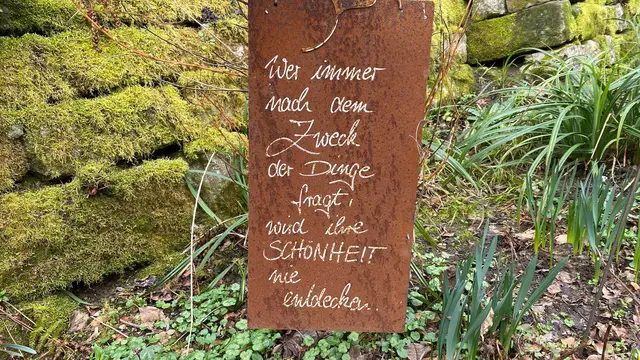 Wer immer
nach dem
Zweck
der Dinge
fragt,
wird ihre
SCHÖNHEIT
nie
entdecken.